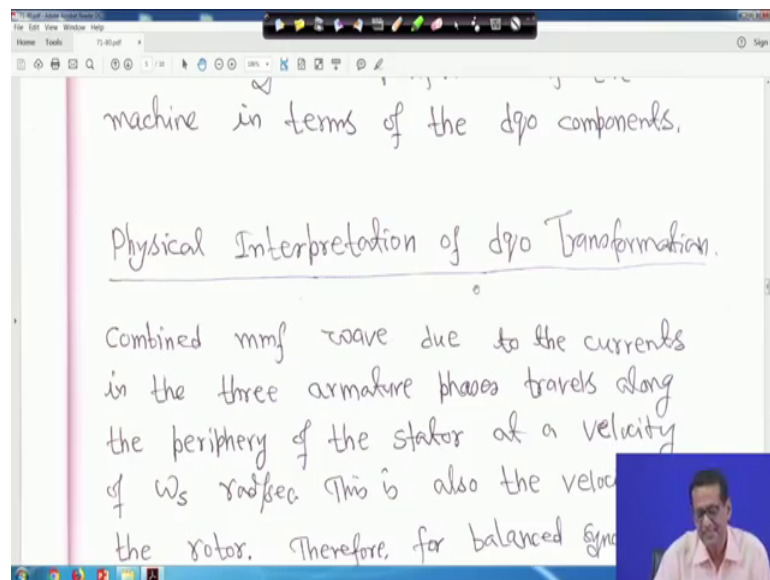 71-80.pdf - Adobe Acrobat Reader DC
File Edit View Window Help
Home Tools 71-80.pdf × Sign
machine in terms of the dqo components.
Physical Interpretation of dqo Transformation.
Combined mmf wave due to the currents
in the three armature phases travels along
the periphery of the stator at a velocity
of ωs rad/sec. This is also the veloc
the rotor. Therefore, for balanced sync